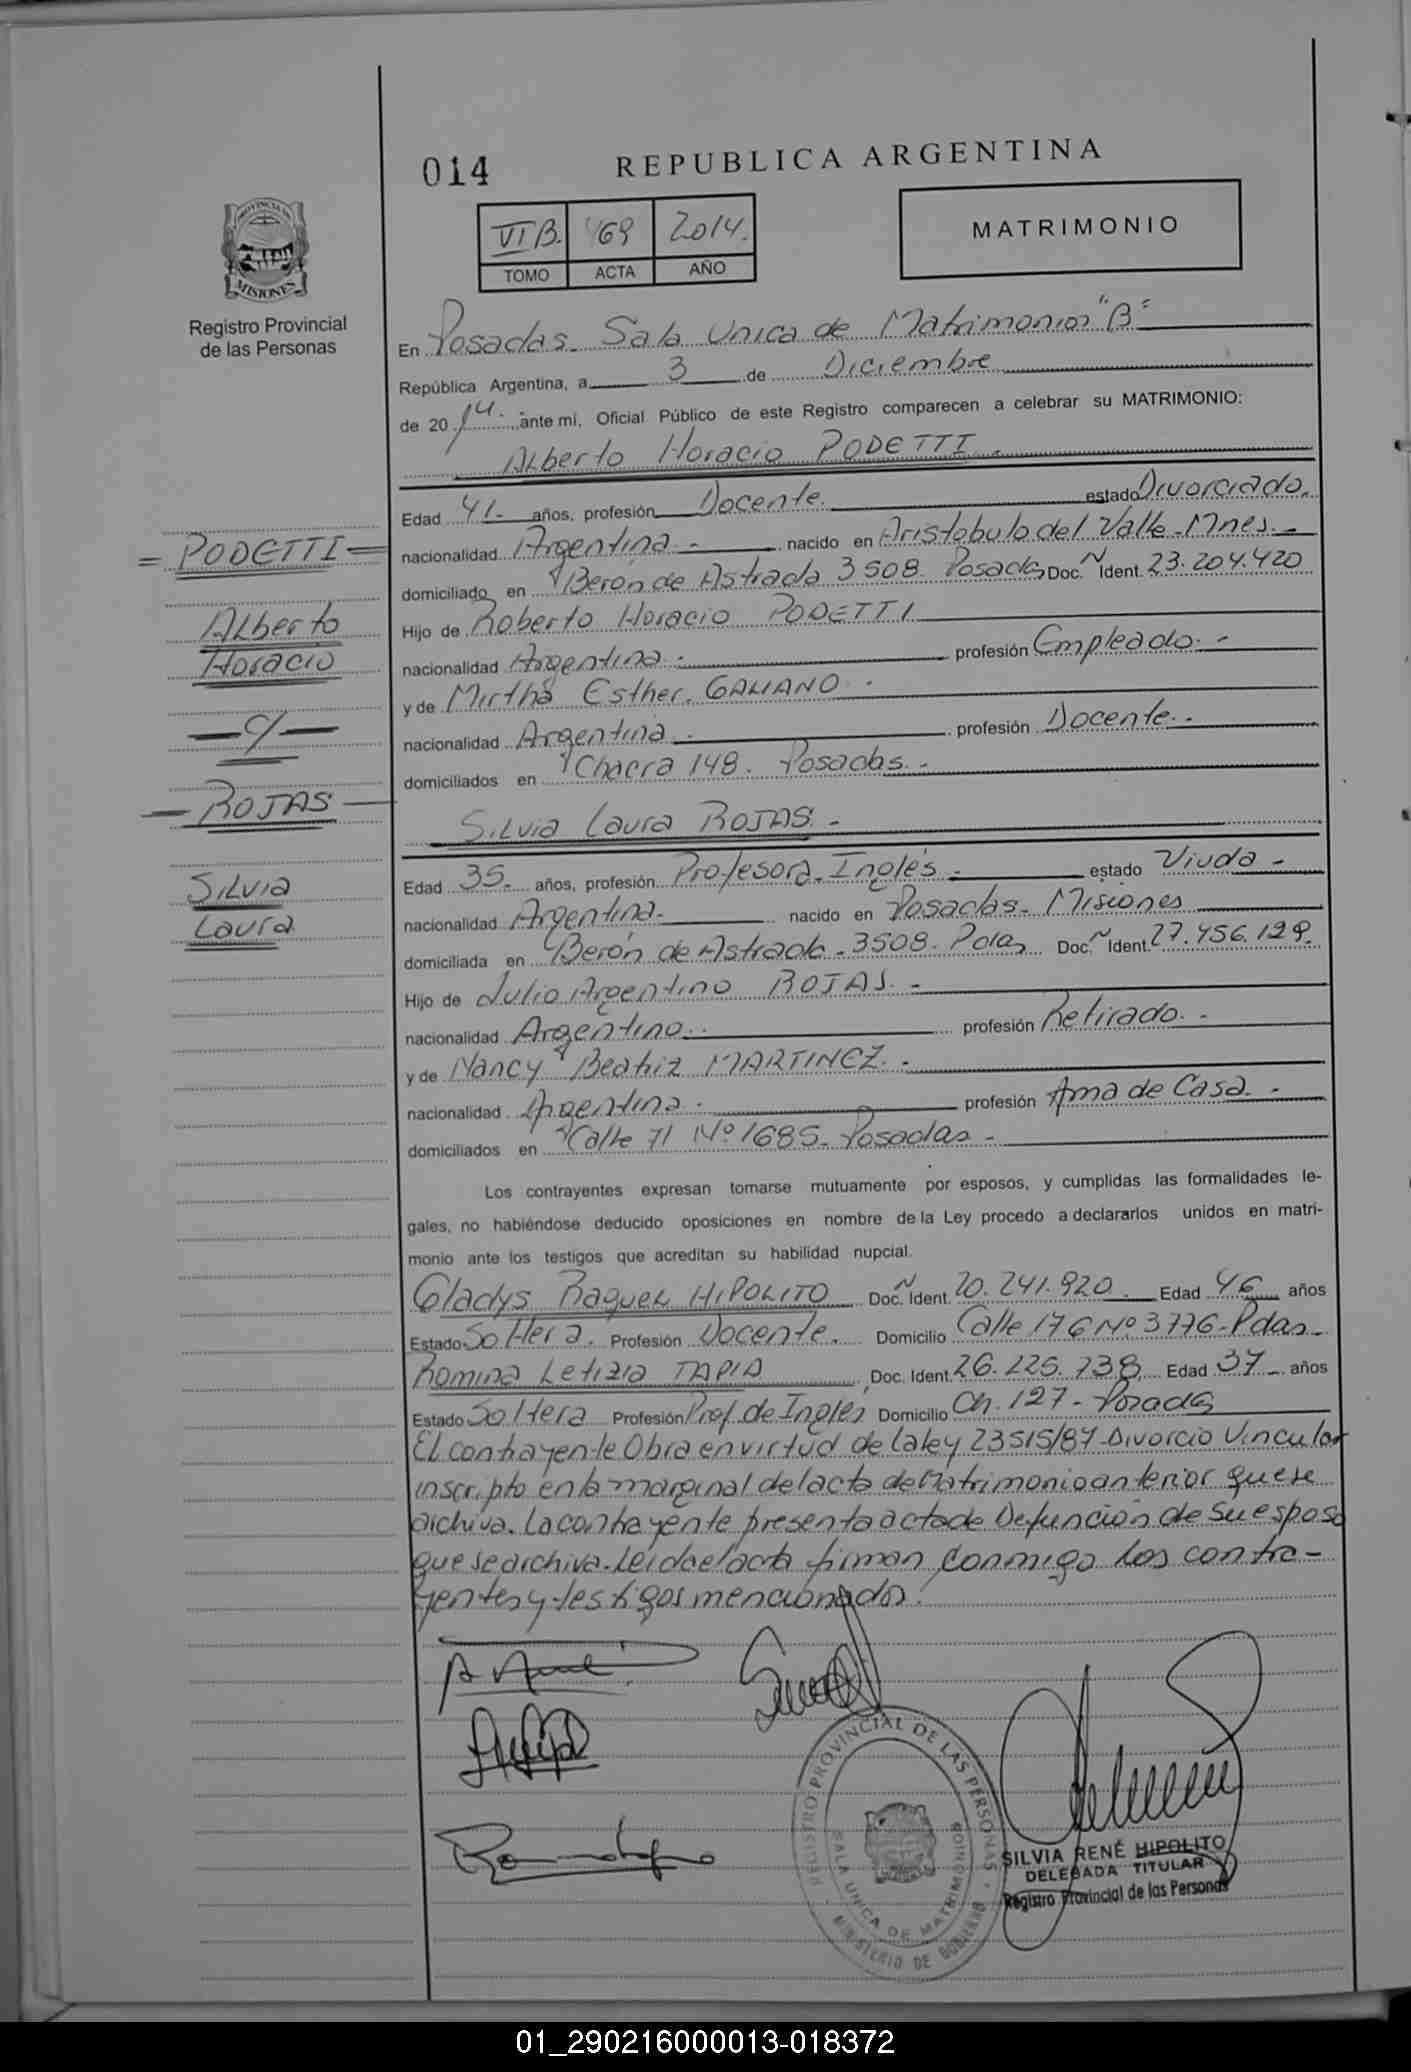 014
REPUBLICA ARGENTINA
PROVINCIA DE
MISIONES
Registro Provincial
de las Personas
VI B. 469 2014.
TOMO ACTA AÑO
MATRIMONIO
En Posadas. Sala Unica de Matrimonios "B"
República Argentina, a 3 de Diciembre
de 2014. ante mi, Oficial Público de este Registro comparecen a celebrar su MATRIMONIO:
Alberto Horacio PODETTI.
Edad 41.- años, profesión Docente. estado Divorciado.
= PODETTI =
nacionalidad Argentina.- nacido en Aristobulo del Valle. Mnes.-
domiciliado en Berón de Astrada 3508. Posadas Doc. Ident. 23.204.420
Alberto
Hijo de Roberto Horacio PODETTI
Horacio
nacionalidad Argentina.- profesión Empleado.-
y de Mirtha Esther. GALIANO.-
— c/ —
nacionalidad Argentina.- profesión Docente.-
domiciliados en Chacra 148. Posadas.-
— ROJAS —
Silvia Laura ROJAS.-
Edad 35.- años, profesión Profesora. Inglés.- estado Viuda.-
Silvia
nacionalidad Argentina.- nacido en Posadas. Misiones
Laura
domiciliada en Berón de Astrada. 3508. Pdas Doc. Ident. 27.456.129.
Hijo de Julio Argentino ROJAS.-
nacionalidad Argentino.- profesión Retirado.-
y de Nancy Beatriz MARTINEZ.-
nacionalidad Argentina.- profesión Ama de Casa.-
domiciliados en Calle 71 Nº 1685. Posadas.-
Los contrayentes expresan tomarse mutuamente por esposos, y cumplidas las formalidades le-
gales, no habiéndose deducido oposiciones en nombre de la Ley procedo a declararlos unidos en matri-
monio ante los testigos que acreditan su habilidad nupcial.
Gladys Raquel HIPOLITO Doc. Ident. 20.241.920. Edad 46 años
Estado Soltera. Profesión Docente. Domicilio Calle 176 Nº 3776-Pdas.-
Romina Letizia TAPIA Doc. Ident. 26.225.738 Edad 37 años
Estado Soltera Profesión Prof. de Inglés Domicilio Ch. 127 - Posadas
El contrayente Obra en virtud de la ley 23515/87-Divorcio Vincular
inscripto en la marginal del acta de Matrimonio anterior que se
archiva. La contrayente presenta acta de Defunción de su esposo
que se archiva. Leida el acta firman conmigo los contra-
yentes y testigos mencionados.
REGISTRO PROVINCIAL DE LAS PERSONAS
SALA UNICA DE MATRIMONIO
MINISTERIO DE GOBIERNO
SILVIA RENÉ HIPOLITO
DELEGADA TITULAR
Registro Provincial de las Personas
01_290216000013-018372